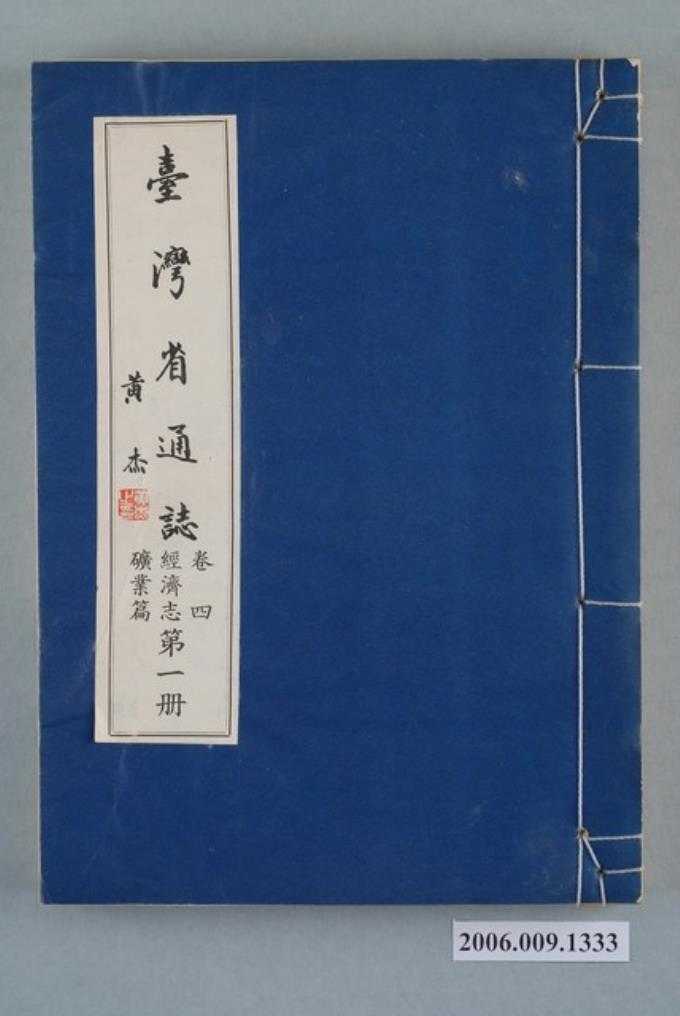 臺灣省通誌
黃杰
卷四
經濟志
礦業篇
第一册
2006.009.1333